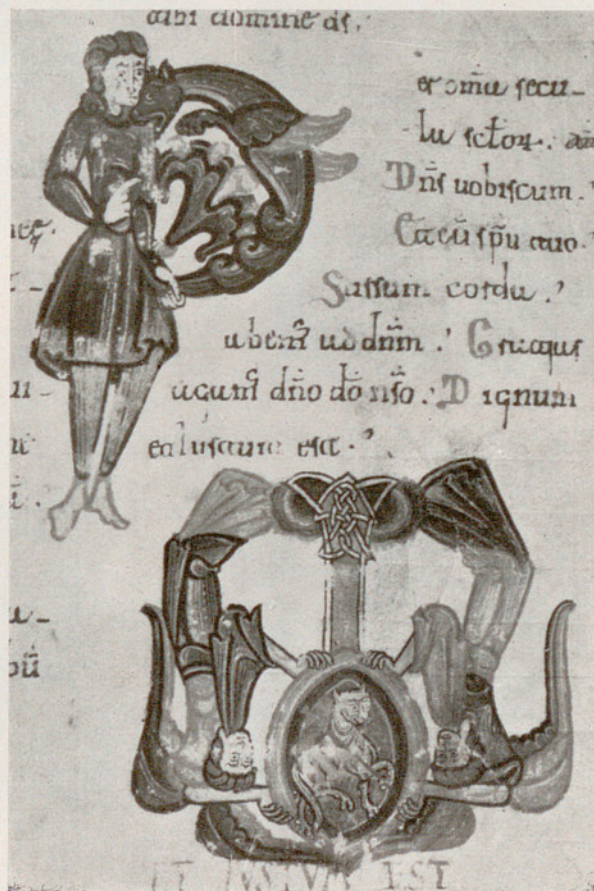 tibi domine ds̄.
er om̄ia secu-
la sc̄lor.
Dn̄s uobiscum.
Et cū sp̄u tuo.
Sursum corda.
ad dn̄m. Gratias
dn̄o dō nr̄o. Dignum
et iustum est.
ET IVSTVM EST